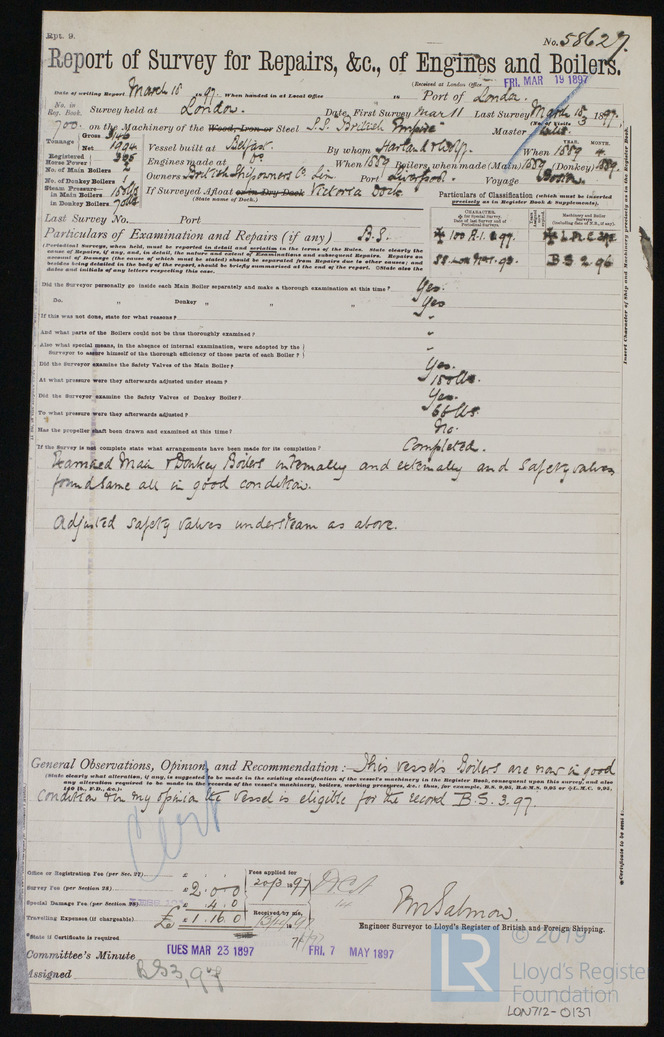 Rpt. 9.
No. 58627.
Report of Survey for Repairs, &c., of Engines and Boilers.
(Received at London Office FRI. MAR 19 1897
Date of writing Report March 18 1897. When handed in at Local Office 18 Port of London.
No. in Reg. Book. Survey held at London. Date, First Survey Mar 11 Last Survey March 18 1897.
(No. of Visits 3
700. on the Machinery of the Wood, Iron or Steel S.S. British Empire Master
Tonnage Gross 3149
Net 1994 Vessel built at Belfast. By whom Harland & Wolff. When 1889 MONTH. 4
Registered Horse Power 395 Engines made at Do When 1889 Boilers, when made (Main) 1889 (Donkey) 1889
No. of Main Boilers 2
No. of Donkey Boilers 1 Owners British Shipowners Co. Lim Port Liverpool. Voyage Boston
Steam Pressure in Main Boilers 180 lbs
in Donkey Boilers 70 lbs If Surveyed Afloat or in Dry Dock Victoria Dock.
(State name of Dock.)
Particulars of Classification (which must be inserted precisely as in Register Book & Supplements).
Last Survey No. Port
Particulars of Examination and Repairs (if any) B.S.
CHARACTER.
Machinery and Boiler Surveys
100 A.1. 2.97.
B S 2 96
(Periodical Surveys, when held, must be reported in detail and seriatim in the terms of the Rules. State clearly the
cause of Repairs, if any, and, in detail, the nature and extent of Examinations and subsequent Repairs. Repairs on
account of Damage (the cause of which must be stated) should be separated from Repairs due to other causes; and
besides being detailed in the body of the report, should be briefly summarised at the end of the report. State also the
dates and initials of any letters respecting this case.
Did the Surveyor personally go inside each Main Boiler separately and make a thorough examination at this time? Yes.
Do. „ Donkey „ „ „ Yes
If this was not done, state for what reasons? „
And what parts of the Boilers could not be thus thoroughly examined? „
Also what special means, in the absence of internal examination, were adopted by the
Surveyor to assure himself of the thorough efficiency of those parts of each Boiler? „
Did the Surveyor examine the Safety Valves of the Main Boiler? Yes.
At what pressure were they afterwards adjusted under steam? 180 lbs.
Did the Surveyor examine the Safety Valves of Donkey Boiler? Yes.
To what pressure were they afterwards adjusted? 66 lbs.
Has the propeller shaft been drawn and examined at this time? No.
If the Survey is not complete state what arrangements have been made for its completion? Completed.
Examined Main & Donkey Boilers internally and externally and Safety valves
found same all in good condition.
Adjusted safety valves under steam as above.
General Observations, Opinion, and Recommendation:— This vessel's Boilers are now in good
(State clearly what alteration, if any, is suggested to be made in the existing classification of the vessel's machinery in the Register Book, consequent upon this survey, and also
any alteration required to be made in the records of the vessel's machinery, boilers, working pressures, &c.: thus, for example, B.S. 9,95, B.&M.S. 9,95 or L.M.C. 9,95,
condition & in my opinion the vessel is eligible for the record B.S. 3.97.
Cert
Office or Registration Fee (per Sec. 27) £
Survey Fee (per Section 28) £ 2.0.0
Special Damage Fee (per Section 28) £ .4.0
Travelling Expenses (if chargeable) £ 1.16.0
Fees applied for
20/3 1897
Received by me,
Wm Salmon.
Engineer Surveyor to Lloyd's Register of British and Foreign Shipping.
State if Certificate is required
Committee's Minute TUES MAR 23 1897 FRI. 7 MAY 1897
Assigned BS 3,97
Insert Character of Ship and Machinery precisely as in the Register Book.
Certificate to be sent to
© 2019
LR
Lloyd's Register
Foundation
LON712-0137